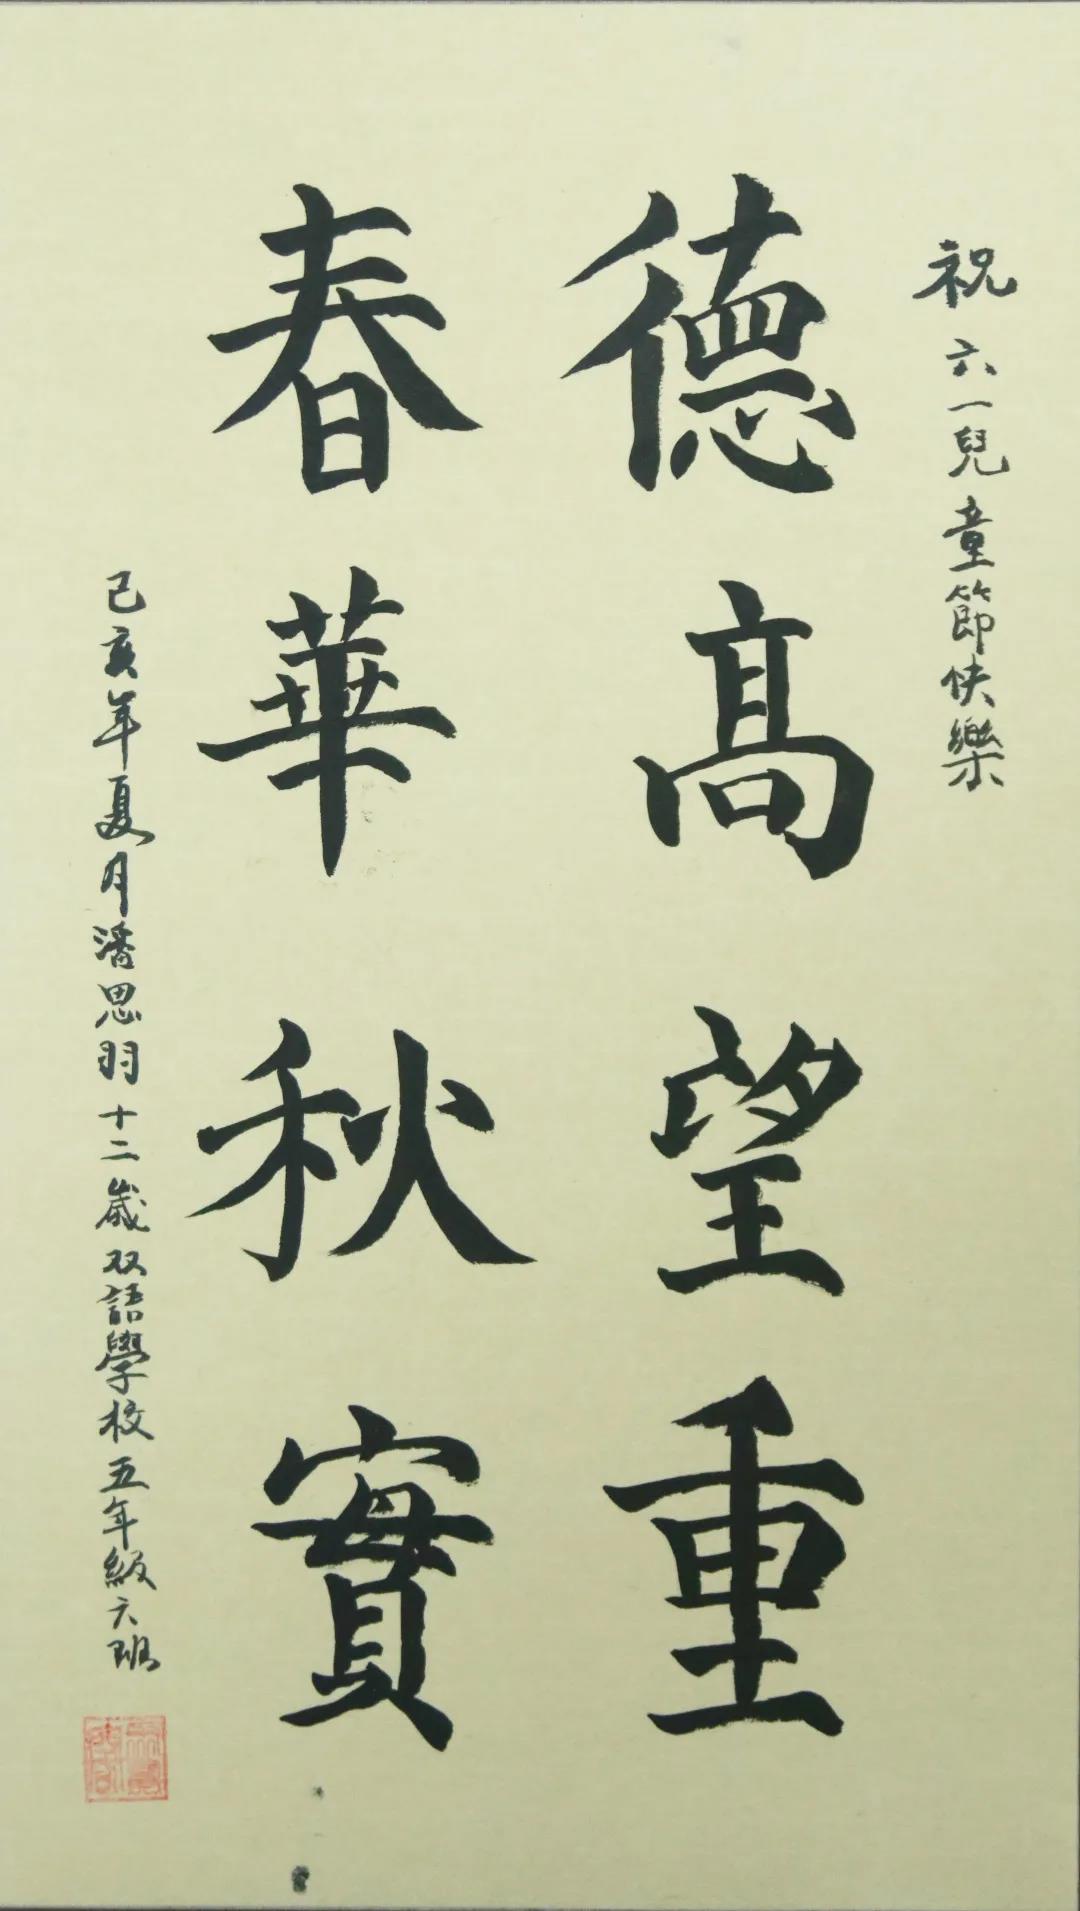 祝六一兒童節快樂
德高望重
春華秋實
己亥年夏月潘思羽十二歲双語學校五年級六班